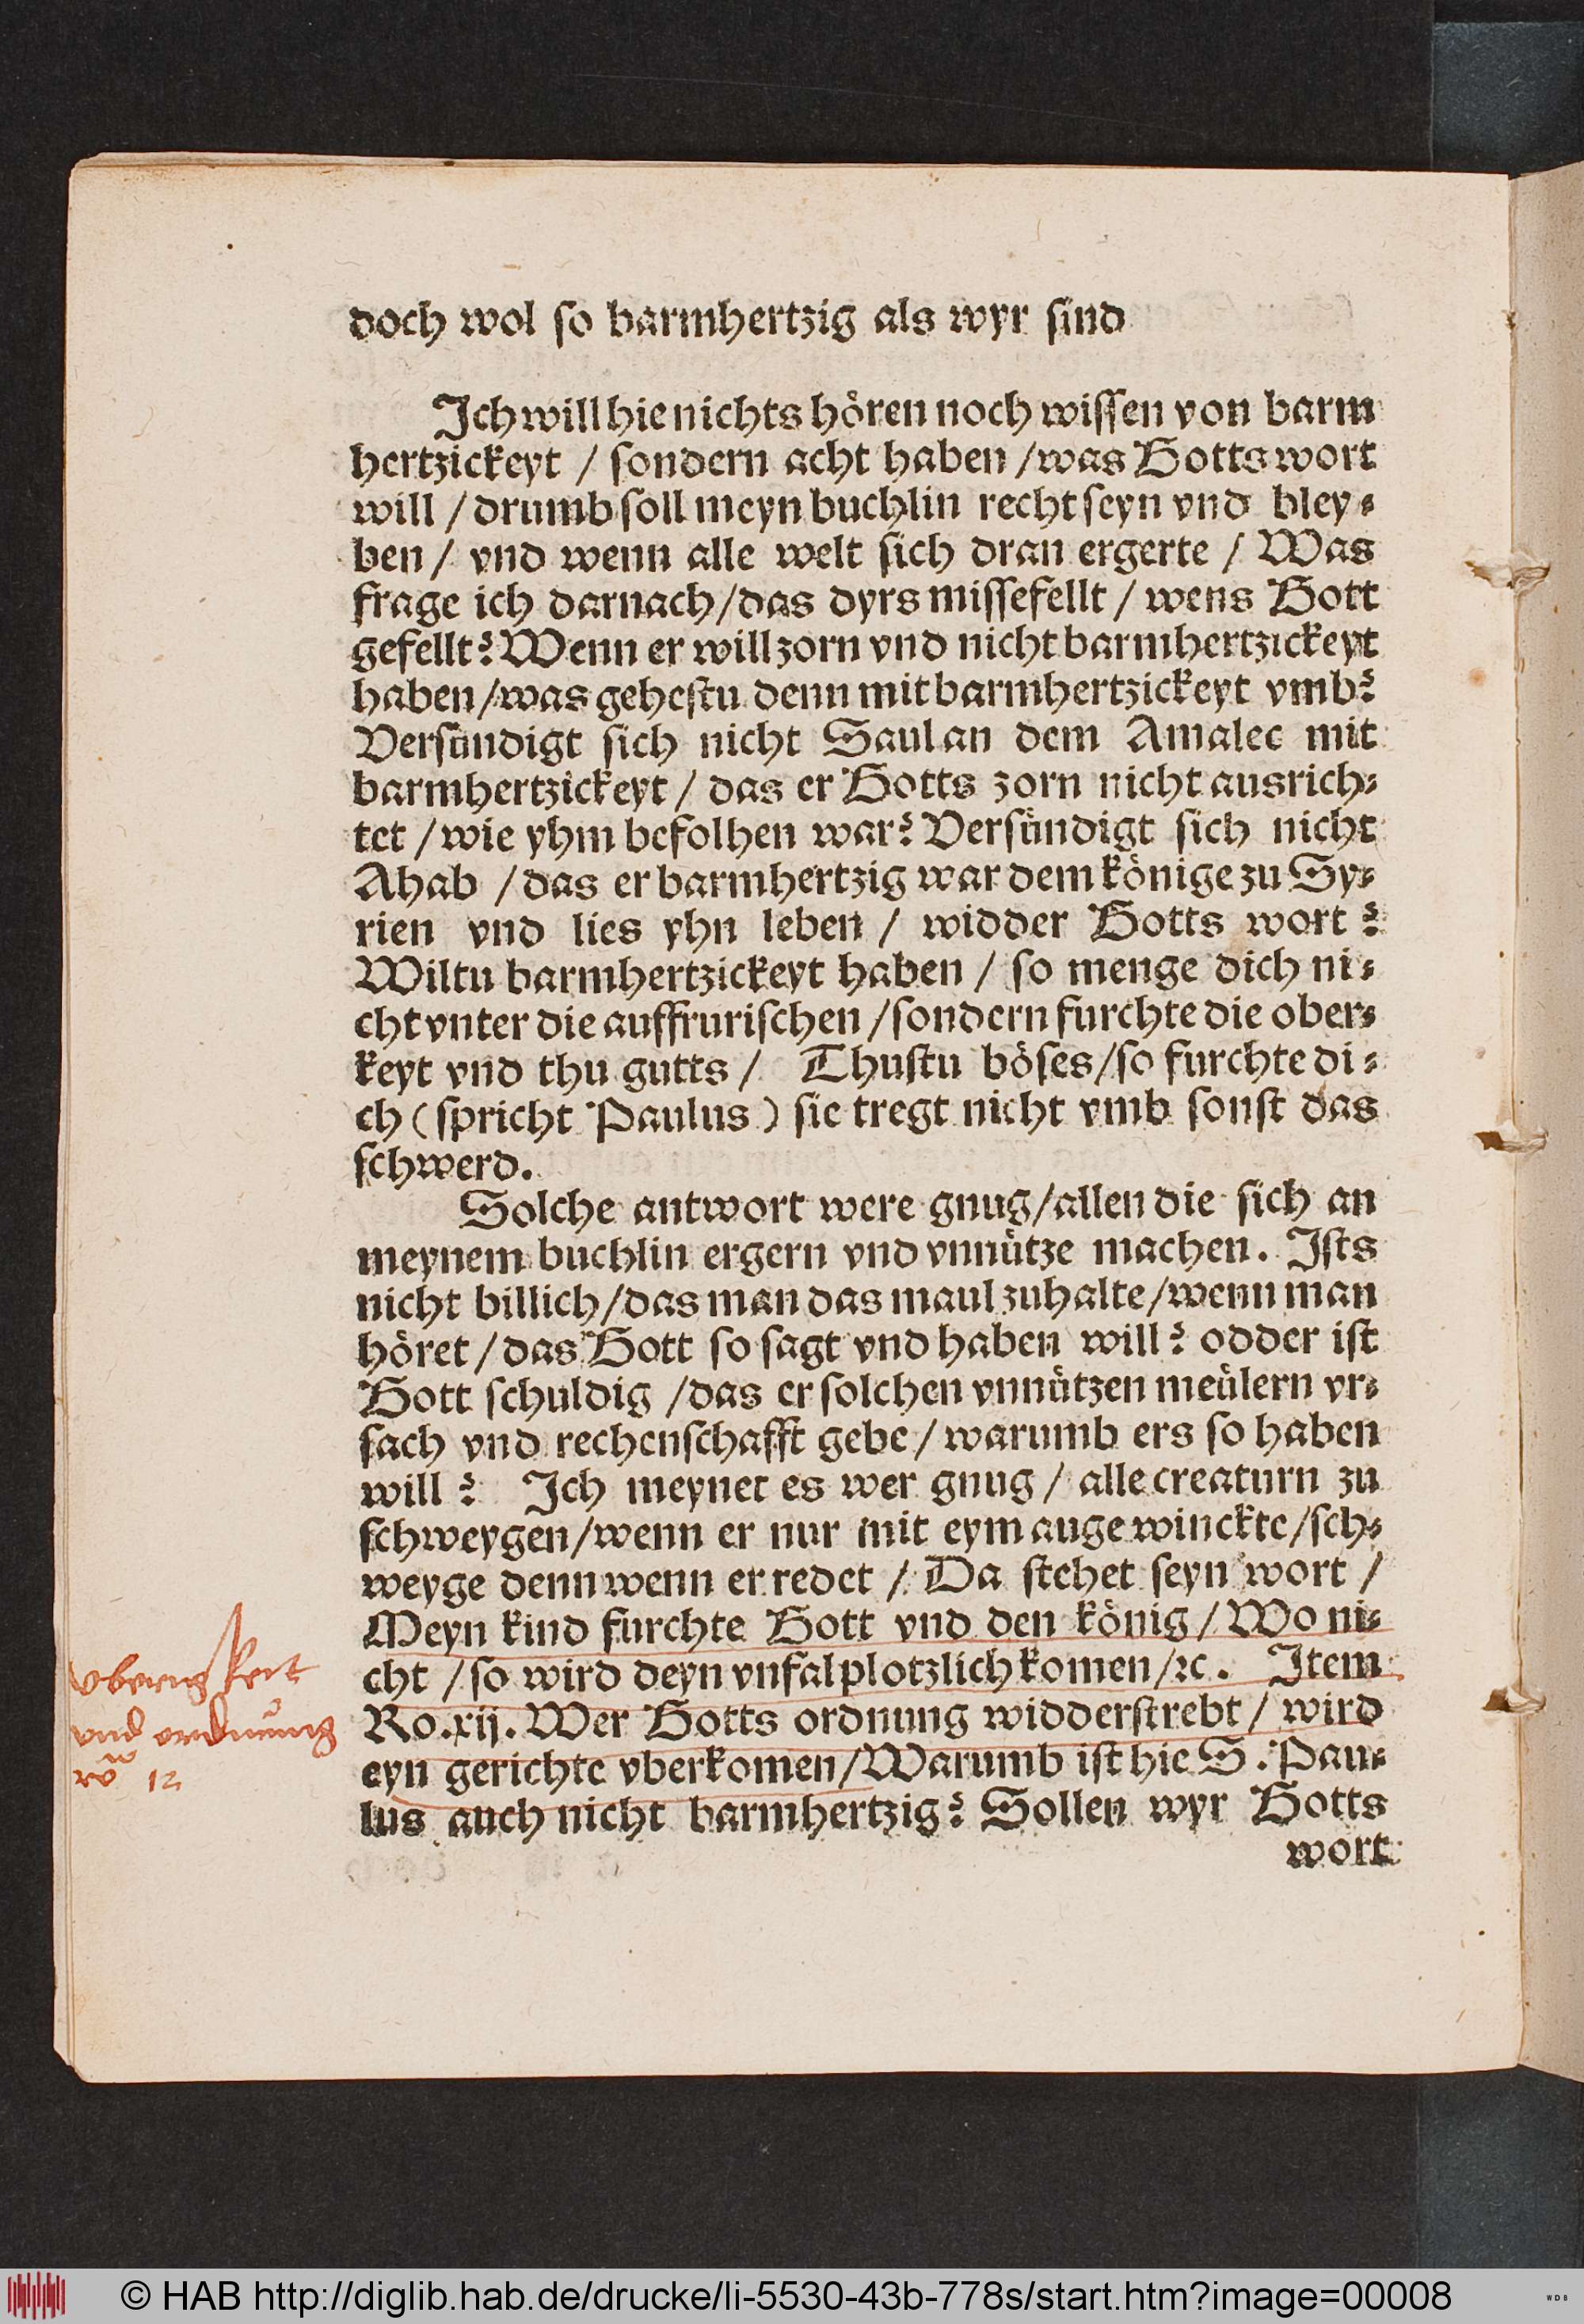 doch wol ſo barmhertzig als wyr ſind
Ich will hie nichts hoͤren noch wiſſen von barm
hertzickeyt / ſondern acht haben / was Gotts wort
will / drumb ſoll meyn buchlin recht ſeyn vnd bley⸗
ben / vnd wenn alle welt ſich dran ergerte / Was
frage ich darnach / das dyrs miſſefellt / wens Gott
gefellt? Wenn er will zorn vnd nicht barmhertzickeyt
haben / was geheſtu denn mit barmhertzickeyt vmb?
Verſuͤndigt ſich nicht Saul an dem Amalec mit
barmhertzickeyt / das er Gotts zorn nicht ausrich⸗
tet / wie yhm befolhen war? Verſuͤndigt ſich nicht
Ahab / das er barmhertzig war dem koͤnige zu Sy⸗
rien vnd lies yhn leben / widder Gotts wort?
Wiltu barmhertzickeyt haben / ſo menge dich ni⸗
cht vnter die auffruriſchen / ſondern furchte die ober⸗
keyt vnd thu gutts / Thuſtu boͤſes / ſo furchte di⸗
ch (ſpricht Paulus) ſie tregt nicht vmb ſonſt das
ſchwerd.
Solche antwort were gnug / allen die ſich an
meynem buchlin ergern vnd vnnuͤtze machen. Iſts
nicht billich / das man das maul zuhalte / wenn man
hoͤret / das Gott ſo ſagt vnd haben will? odder iſt
Gott ſchuldig / das er ſolchen vnnuͤtzen meuͤlern vr⸗
ſach vnd rechenſchafft gebe / warumb ers ſo haben
will? Ich meynet es wer gnug / alle creaturn zu
ſchweygen / wenn er nur mit eym auge winckte / ſch⸗
weyge denn wenn er redet / Da ſtehet ſeyn wort /
Meyn kind furchte Gott vnd den koͤnig / Wo ni⸗
cht / ſo wird deyn vnfal plotzlich komen / ꝛc. Item
Ro. xij. Wer Gotts ordnung widderſtrebt / wird
eyn gerichte vberkomen / Warumb iſt hie S. Pau⸗
lus auch nicht barmhertzig? Sollen wyr Gotts
wort
vberigkeit
vnd ordnung
ro 12
© HAB http://diglib.hab.de/drucke/li-5530-43b-778s/start.htm?image=00008
WDB